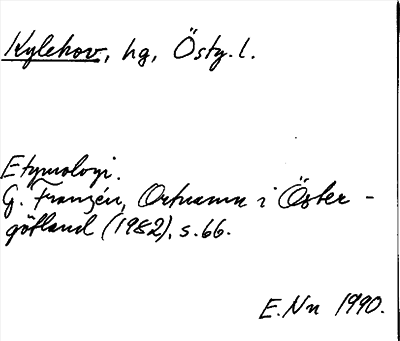 Kylehov, hg, Östg. l.
Etymologi.
G. Franzén, Ortnamn i Öster-
götland (1982), s. 66.
E. Nn 1990.